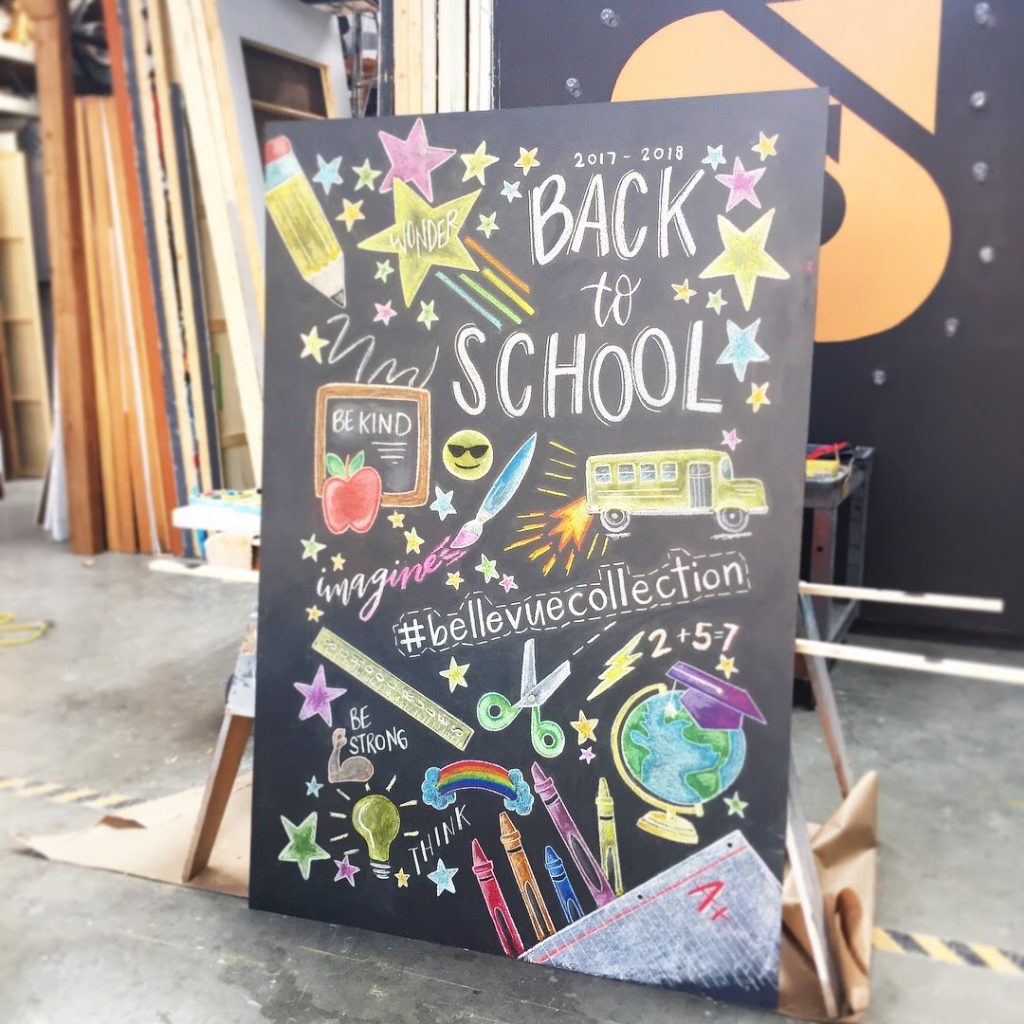 2017 - 2018
BACK
to
SCHOOL
WONDER
BE KIND
imagine
#bellevuecollection
2+5=7
BE
STRONG
THINK
A+